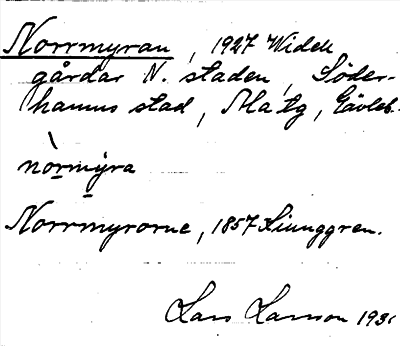 Norrmyran, 1927 Widell
gårdar N. staden, Söder-
hamns stad, Ma tg, Gävleb.
nòrmýra
Norrmyrorne, 1857 Ljunggren.
Lars Larsson 193